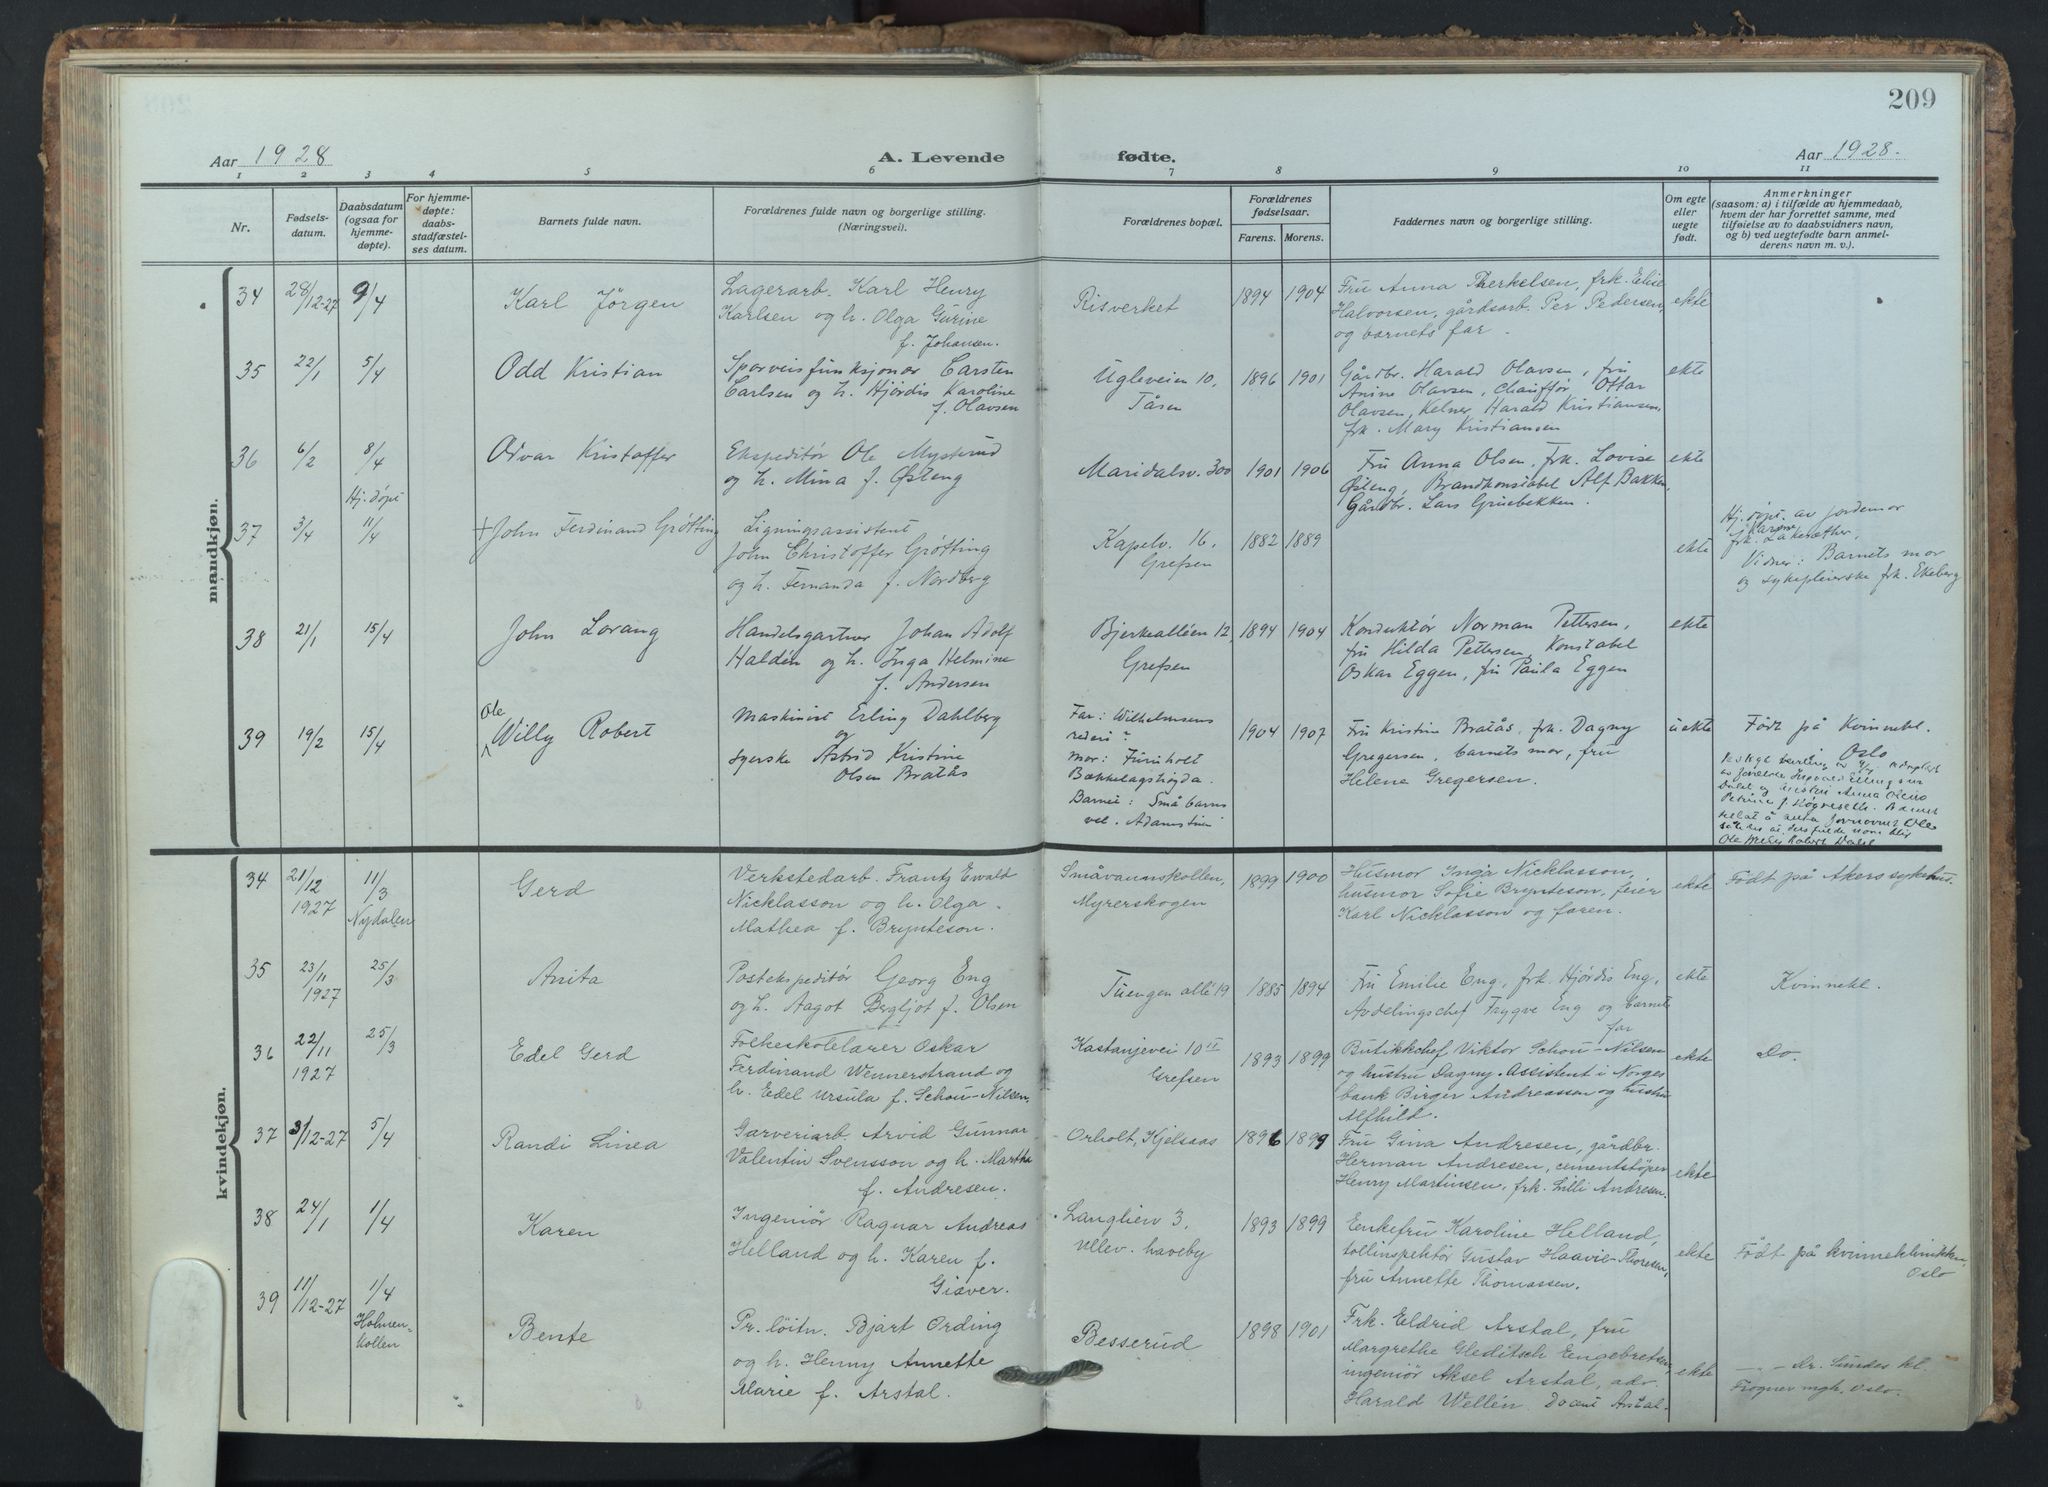 209
Aar 1928
A. Levende fødte.
Aar 1928.
1 2 3 4 5 6 7 8 9 10 11
Nr.
Fødsels-
datum.
Daabsdatum
(ogsaa for
hjemme-
døpte).
For hjemme-
døpte:
daabs-
stadfæstel-
ses datum.
Barnets fulde navn.
Forældrenes fulde navn og borgerlige stilling.
(Næringsvei).
Forældrenes bopæl.
Forældrenes
fødselsaar.
Farens. Morens.
Faddernes navn og borgerlige stilling.
Om egte
eller
uegte
født.
Anmerkninger
(saasom: a) i tilfælde av hjemmedaab,
hvem der har forrettet samme, med
tilføielse av to daabsvidners navn,
og b) ved uegtefødte barn anmel-
derens navn m. v.).
mandkjøn.
34 28/12-27 9/4
Karl Jörgen
Lagerarb. Karl Henry
Karlsen og h. Olga Gurine
f. Johansen.
Risverket
1894 1904
Fru Anna Therkelsen, frk. Elise
Halvorsen, gårdsarb. Per Pedersen,
og barnets far.
ekte
35 22/1 5/4
Odd Kristian
Sporveisfunksjonær Carsten
Carlsen og h. Hjørdis Karoline
f. Olavsen
Ugleveien 10,
Tåsen
1896 1901
Gårdbr. Harald Olavsen, fru
Anine Olavsen, chauffør Ottar
Olavsen, Kelner Harald Kristiansen,
frk. Mary Kristiansen
ekte
36 6/2 8/4
Odvar Kristoffer
Ekspeditör Ole Mysterud
og h. Mina f. Østeng
Maridalsv. 300
1901 1906
Fru Anna Olsen, frk. Lovise
Østeng, Brandkonstabel Alf Bakken,
Gårdbr. Lars Gruebekken.
ekte
37 3/4 Hj. döpt 11/4
+ John Ferdinand Grøtting
Ligningsassistent
John Christoffer Grøtting
og h. Fernanda f. Nordberg
Kapelv. 16,
Grefsen
1882 1889
ekte
Hj. döpt. av jordemor
frk. Karen
Vidner: Barnets mor
og sykepleierske frk. Ekeberg
38 21/1 15/4
John Lorang
Handelsgartner Johan Adolf
Haldén og h. Inga Helmine
f. Andersen
Bjerkealléen 12
Grefsen
1894 1904
Konduktör Norman Pettersen,
fru Hilda Pettersen, Konstabel
Oskar Eggen, fru Paula Eggen
ekte
39 19/2 15/4
Ole
Willy Robert
Maskinist Erling Dahlberg
og
syerske Astrid Kristine
Olsen Bratås
Far: Wilhelmsens
rederi?
Mor: Furuholt
Bekkelagshøgda.
Barnet: Små barns
vel. Adamstuen
1904 1907
Fru Kristine Bratås, frk. Dagny
Gregersen, barnets mor, fru
Helene Gregersen.
uekte
Født på Kvinnekl.
Oslo
kvindekjøn.
34 21/12 1927 11/3 Nydalen
Gerd
Verkstedarb. Frantz Ewald
Nicklasson og h. Olga
Mathea f. Brynteson.
Småvannskollen,
Myrerskogen
1899 1900
Husmor Inga Nicklasson,
husmor Sofie Brynteson, feier
Karl Nicklasson og faren.
ekte
Født på Akers sykehus.
35 23/11 1927 25/3
Anita
Postekspeditör Georg Eng
og h. Aagot Bergljot f. Olsen
Tuengen allé 19
1885 1894
Fru Emilie Eng, frk. Hjørdis Eng,
Avdelingschef Trygve Eng og barnets
far
ekte
Kvinnekl.
36 22/11 1927 25/3
Edel Gerd
Folkeskolelærer Oskar
Ferdinand Wennerstrand og
h. Edel Ursula f. Schou-Nilsen.
Kastanjevei 10 II
Grefsen
1893 1899
Butikkchef Viktor Schou-Nilsen
og hustru Dagny. Assistent i Norges
bank Birger Andreassen og hustru
Alfhild.
ekte
Do.
37 3/12-27 5/4
Randi Linea
Garveriarb. Arvid Gunnar
Valentin Svensson og h. Martha
f. Andresen.
Orholt, Kjelsaas
1896 1899
Fru Gina Andresen, gårdbr.
Herman Andresen, cementstöper
Henry Martinsen, frk. Lilli Andresen.
ekte
38 24/1 1/4
Karen
Ingeniör Ragnar Andreas
Helland og h. Karen f.
Giæver.
Langlien 3,
Ullev. haveby
1893 1899
Enkefru Karoline Helland,
tollinspektör Gustav Haavie-Thoresen,
fru Annette Thomassen.
ekte
Født på kvinneklinikken,
Oslo
39 11/12-27 1/4 Holmen-
kollen
Bente
Pr. löitn. Bjart Ording
og h. Henny Annette
Marie f. Arstal.
Besserud
1898 1901
Frk. Eldrid Arstal, fru
Margrethe Gleditsch Engebretsen,
ingeniör Aksel Arstal, adv.
Harald Wellén. Docent Arstal.
ekte
—"— Dr. Sundes kl.
Frogner mgh. Oslo.